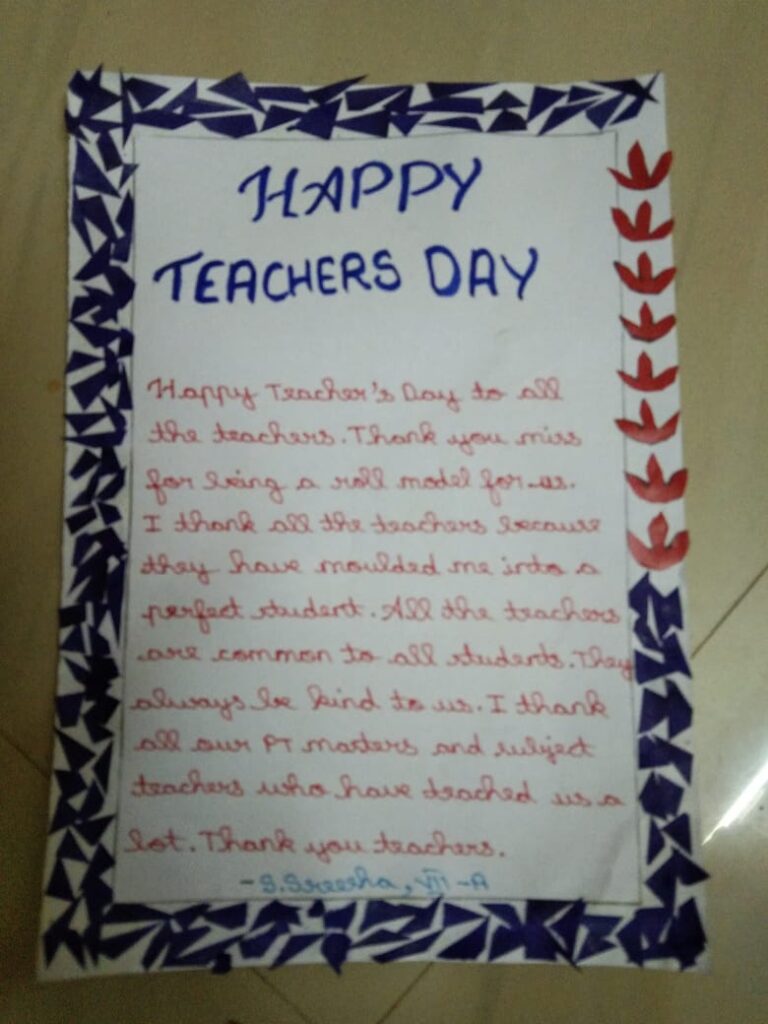 HAPPY
TEACHERS DAY
Happy Teacher's Day to all
the teachers. Thank you miss
for being a roll model for us.
I thank all the teachers because
they have moulded me into a
perfect student. All the teachers
are common to all students. They
always be kind to us. I thank
all our PT masters and subject
teachers who have teached us a
lot. Thank you teachers.
- S. Sreesha, VII - A